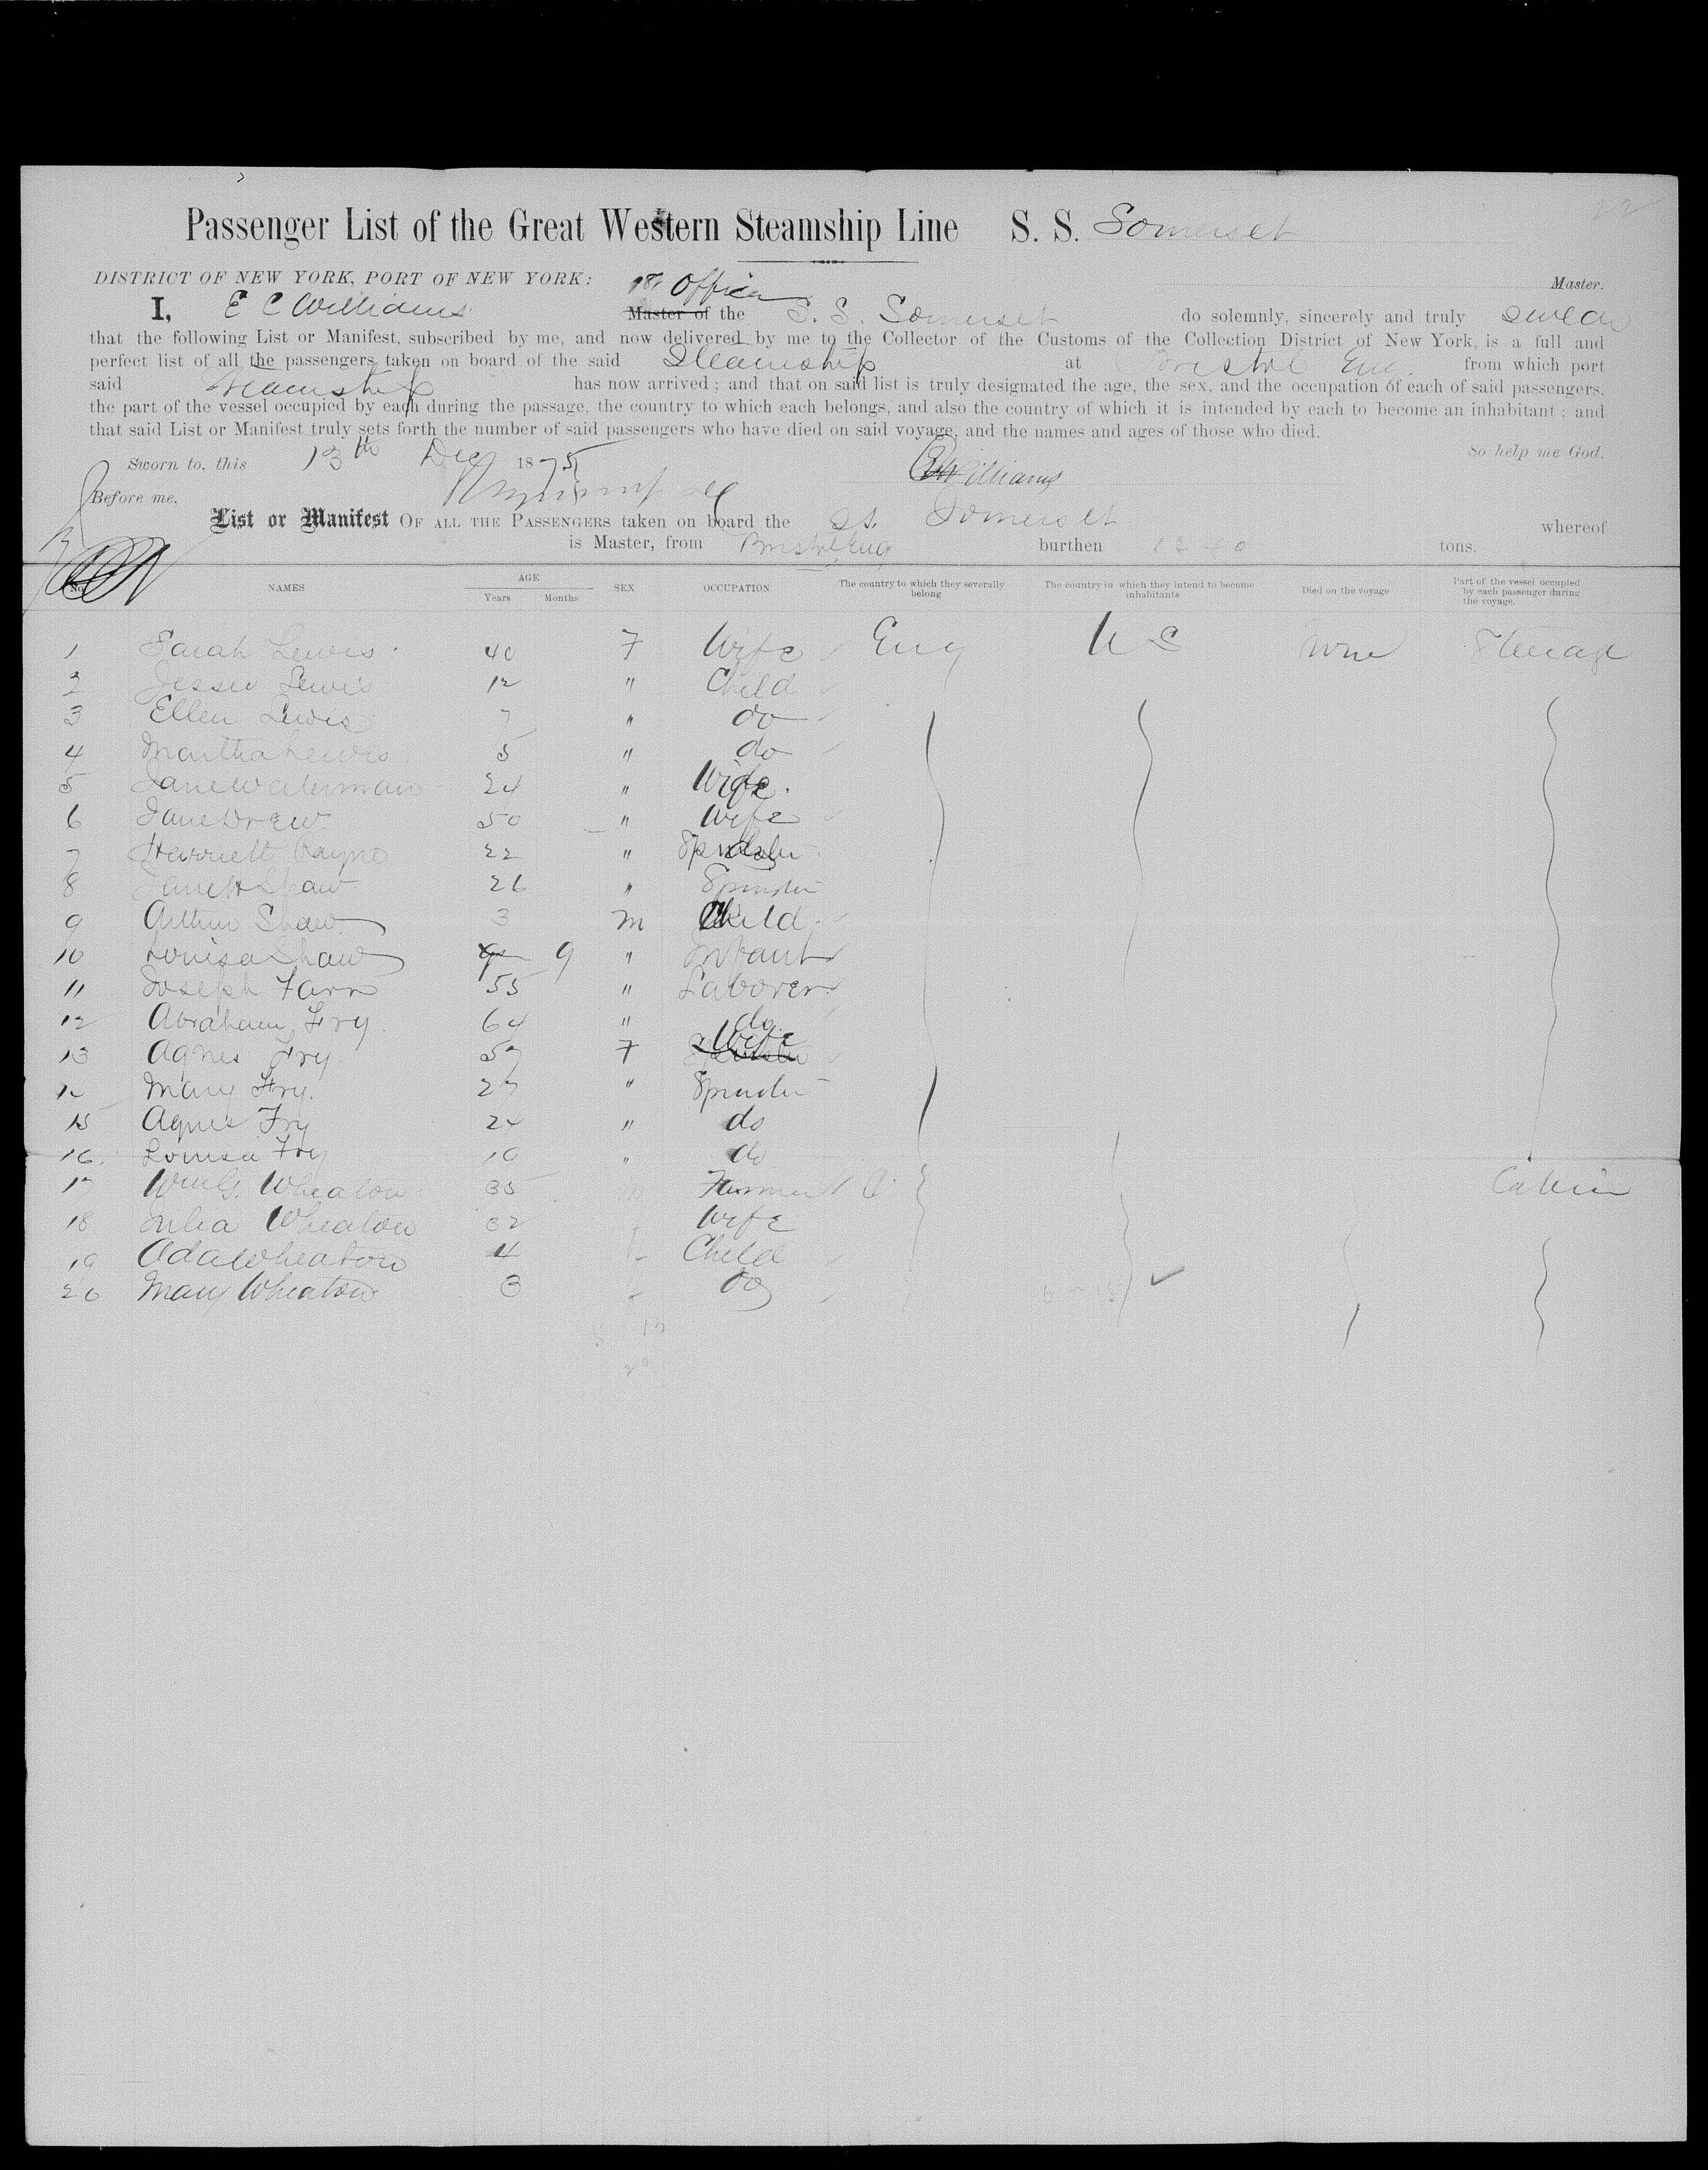 22
Passenger List of the Great Western Steamship Line S. S. Somerset
DISTRICT OF NEW YORK, PORT OF NEW YORK: Master.
1st Officer
I, E C Williams Master of the S. S. Somerset do solemnly, sincerely and truly swear
that the following List or Manifest, subscribed by me, and now delivered by me to the Collector of the Customs of the Collection District of New York, is a full and
perfect list of all the passengers taken on board of the said Steamship at Bristol Eng. from which port
said Steamship has now arrived ; and that on said list is truly designated the age, the sex, and the occupation of each of said passengers,
the part of the vessel occupied by each during the passage, the country to which each belongs, and also the country of which it is intended by each to become an inhabitant ; and
that said List or Manifest truly sets forth the number of said passengers who have died on said voyage, and the names and ages of those who died.
So help me God.
Sworn to, this 13th Dec 1875
Williams
Before me,
List or Manifest OF ALL THE PASSENGERS taken on board the SS. Somerset whereof
is Master, from Bristol Eng burthen tons.
No NAMES AGE Years Months SEX OCCUPATION The country to which they severally belong The country in which they intend to become inhabitants Died on the voyage Part of the vessel occupied by each passenger during the voyage.
1 Sarah Lewis 40 F Wife Eng U S None Steerage
2 Jessie Lewis 12 " Child
3 Ellen Lewis 7 " do
4 Martha Lewis 5 " do
5 Jane Waterman 24 " Wife.
6 Jane Drew 50 " Wife
7 Harriett Payne 22 " Spinster
8 Jane H Shaw 26 " Spinster
9 Arthur Shaw 3 m Child
10 Louisa Shaw 9 " Infant
11 Joseph Farr 55 " Laborer
12 Abraham Fry 64 " do
13 Agnes Fry 57 F Wife
14 Mary Fry. 27 " Spinster
15 Agnes Fry 24 " do
16. Louisa Fry 19 " do
17 Wm G. Wheaton 35 m Farmer Cabin
18 Julia Wheaton 32 Wife
19 Ada Wheaton 4 Child
20 Mary Wheaton 3 do
5 15
20